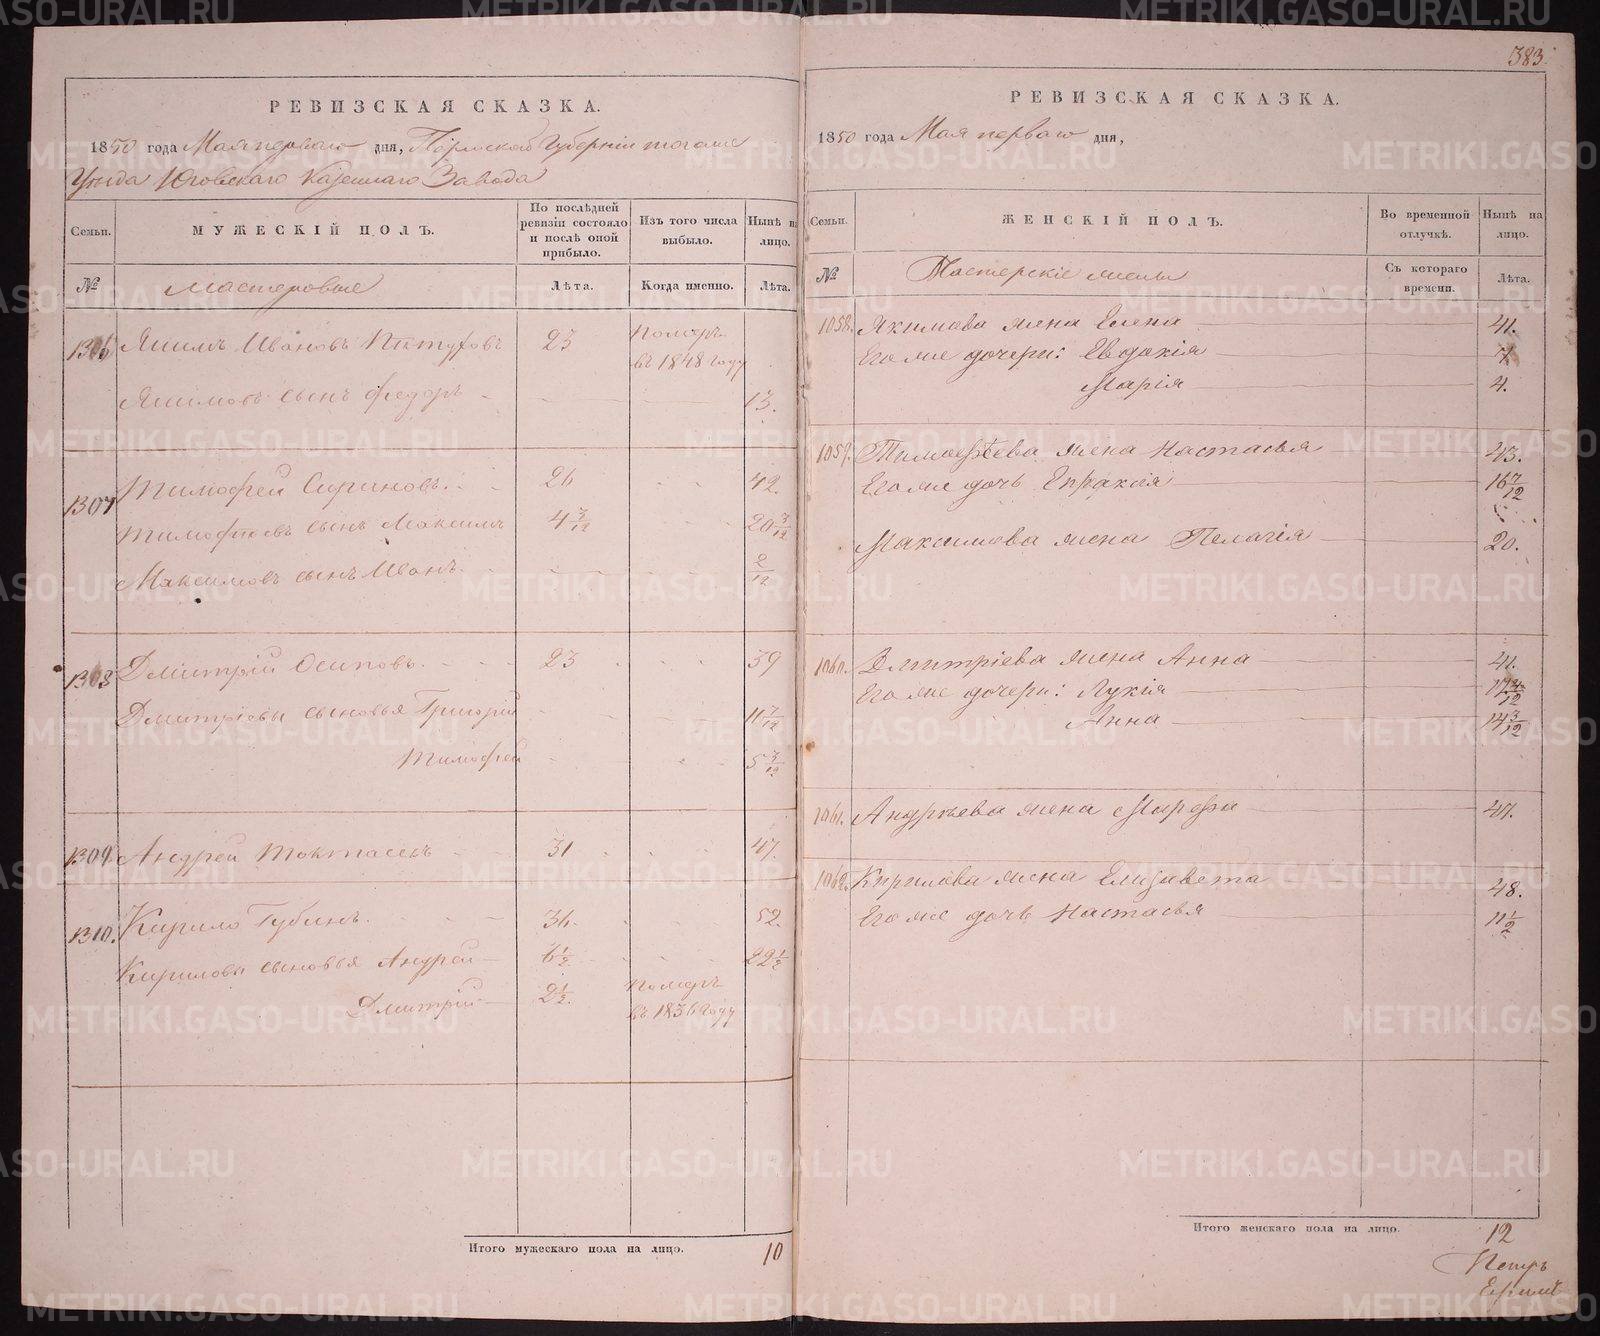 383.
РЕВИЗСКАЯ СКАЗКА.
1850 года Мая перваго дня, Пермской Губернiи тогоже
Уѣзда Юговскаго Казеннаго Завода
Семьи.
МУЖЕСКІЙ ПОЛЪ.
По послѣдней ревизіи состояло и послѣ оной прибыло.
Изъ того числа выбыло.
Нынѣ на лицо.
№
Мастеровые
Лѣта.
Когда именно.
Лѣта.
1306 Якимъ Ивановъ Пѣтуховъ 23 Померъ
въ 1848 году
Якимовъ сынъ Федоръ 13.
1307 Тимофей Сириновъ 26 42.
Тимофѣевъ сынъ Максимъ 4 3/12 20 3/12
Максимовъ сынъ Иванъ 2/12
1308 Дмитрій Осиповъ 23 39
Дмитріевы сыновья Григорій 11 7/12
Тимофей 5 3/12
1309 Андрей Токтасевъ 31 47.
1310. Кирило Губинъ 36. 52.
Кириловы сыновья Андрей 6 1/2 22 1/2
Дмитрій 2 1/2. Померъ
въ 1836 году
Итого мужескаго пола на лицо. 10
РЕВИЗСКАЯ СКАЗКА.
1850 года Мая перваго дня,
Семьи.
ЖЕНСКІЙ ПОЛЪ.
Во временной отлучкѣ.
Нынѣ на лицо.
№
Мастерскіе жены
Съ котораго времени.
Лѣта.
1058. Якимова жена Елена 41.
Его же дочери: Евдокія 7
Марія 4.
1059. Тимофѣева жена Настасья 43.
Его же дочь Епракія 16 7/12
Максимова жена Пелагія 20.
1060. Дмитріева жена Анна 41.
Его же дочери: Лукія
Анна 14 3/12
1061. Андрѣева жена Марфа 47.
1062. Кирилова жена Елизавета 48.
Его же дочь Настасья 11 1/2
Итого женскаго пола на лицо. 12
Петръ
METRIKI.GASO-URAL.RU